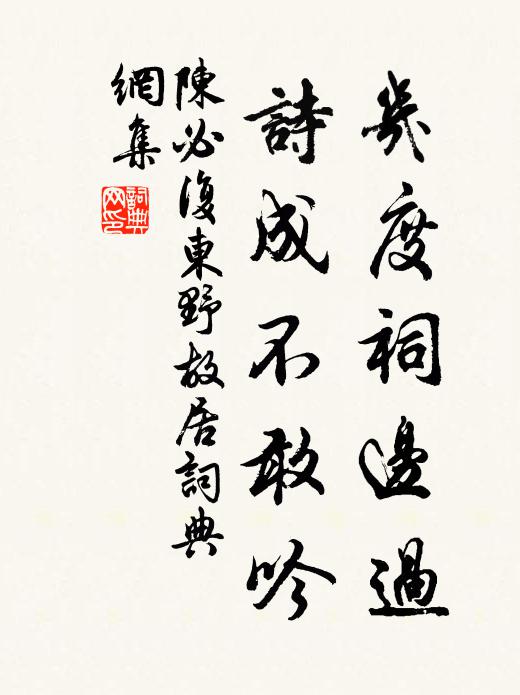 幾度祠邊過
詩成不敢吟
陳必復東野故居詞典
網集
詞典
網印